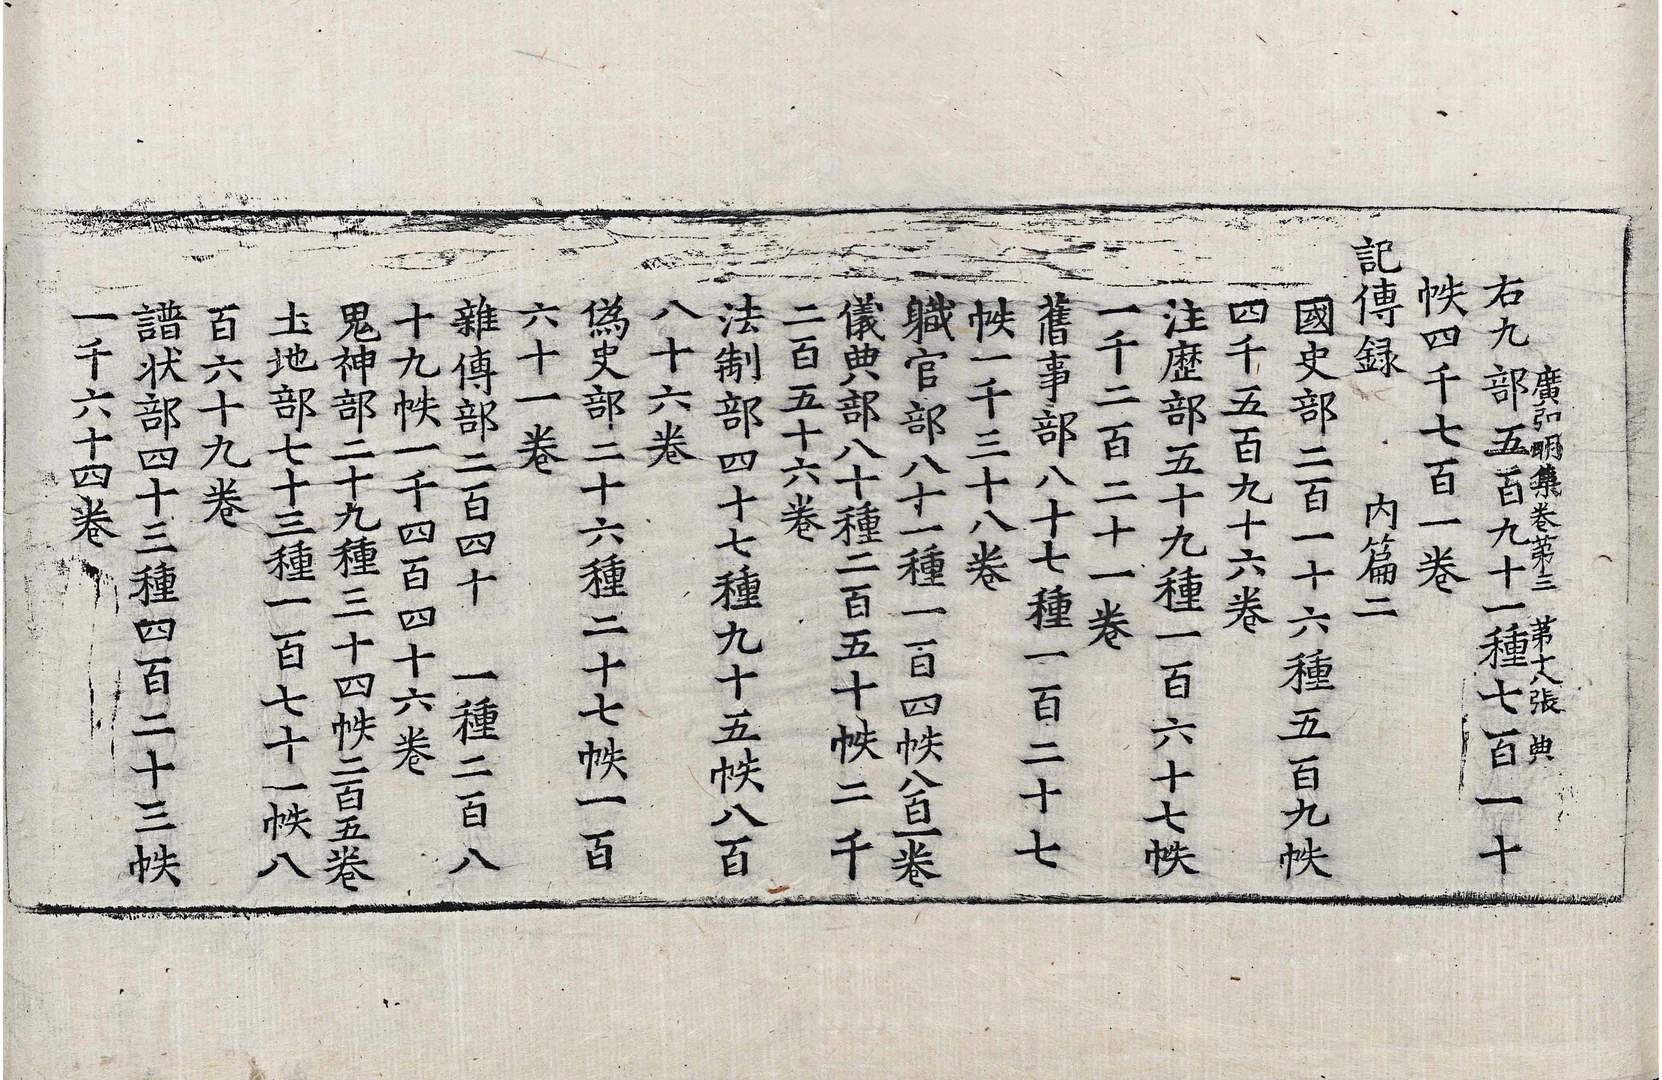 廣弘明集卷第三 第十八張 典
右九部五百九十一種七百一十
帙四千七百一卷
記傳録 内篇二
國史部二百一十六種五百九帙
四千五百九十六卷
注歷部五十九種一百六十七帙
一千二百二十一卷
舊事部八十七種一百二十七
帙一千三十八卷
職官部八十一種一百四帙八百一卷
儀典部八十種二百五十帙二千
二百五十六卷
法制部四十七種九十五帙八百
八十六卷
偽史部二十六種二十七帙一百
六十一卷
雜傳部二百四十 一種二百八
十九帙一千四百四十六卷
鬼神部二十九種三十四帙二百五卷
土地部七十三種一百七十一帙八
百六十九卷
譜状部四十三種四百二十三帙
一千六十四卷